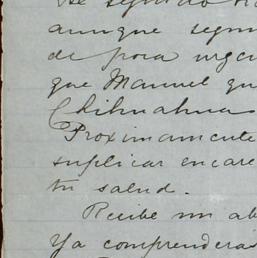 He seguido
aunque segun
de poca urgen
que Manuel qu
Chihuahua
Proximamente
suplicar encare
tu salud.
Recibe un ab
Ya comprenderás